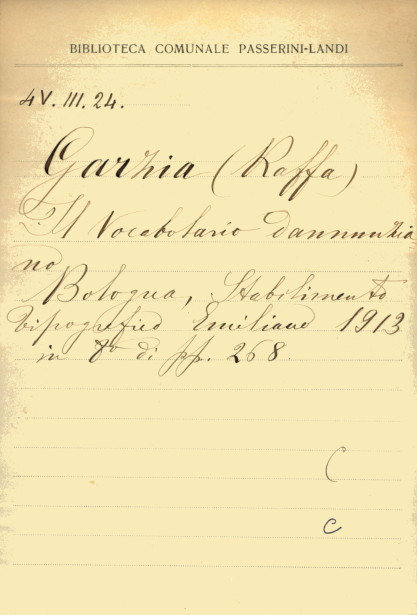 BIBLIOTECA COMUNALE PASSERINI-LANDI
4V. III. 24.
Garzia (Raffa)
Il Vocabolario dannunzia
no
Bologna, Stabilimento
tipografico Emiliano 1913
in 8° di pp. 268
C
C